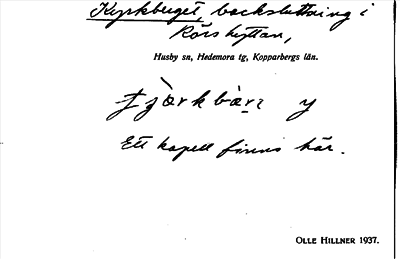 Kyrkbuget, backsluttning i
Rörshyttan,
Husby sn, Hedemora tg, Kopparbergs län.
y
Ett kapell finns här.
OLLE HILLNER 1937.